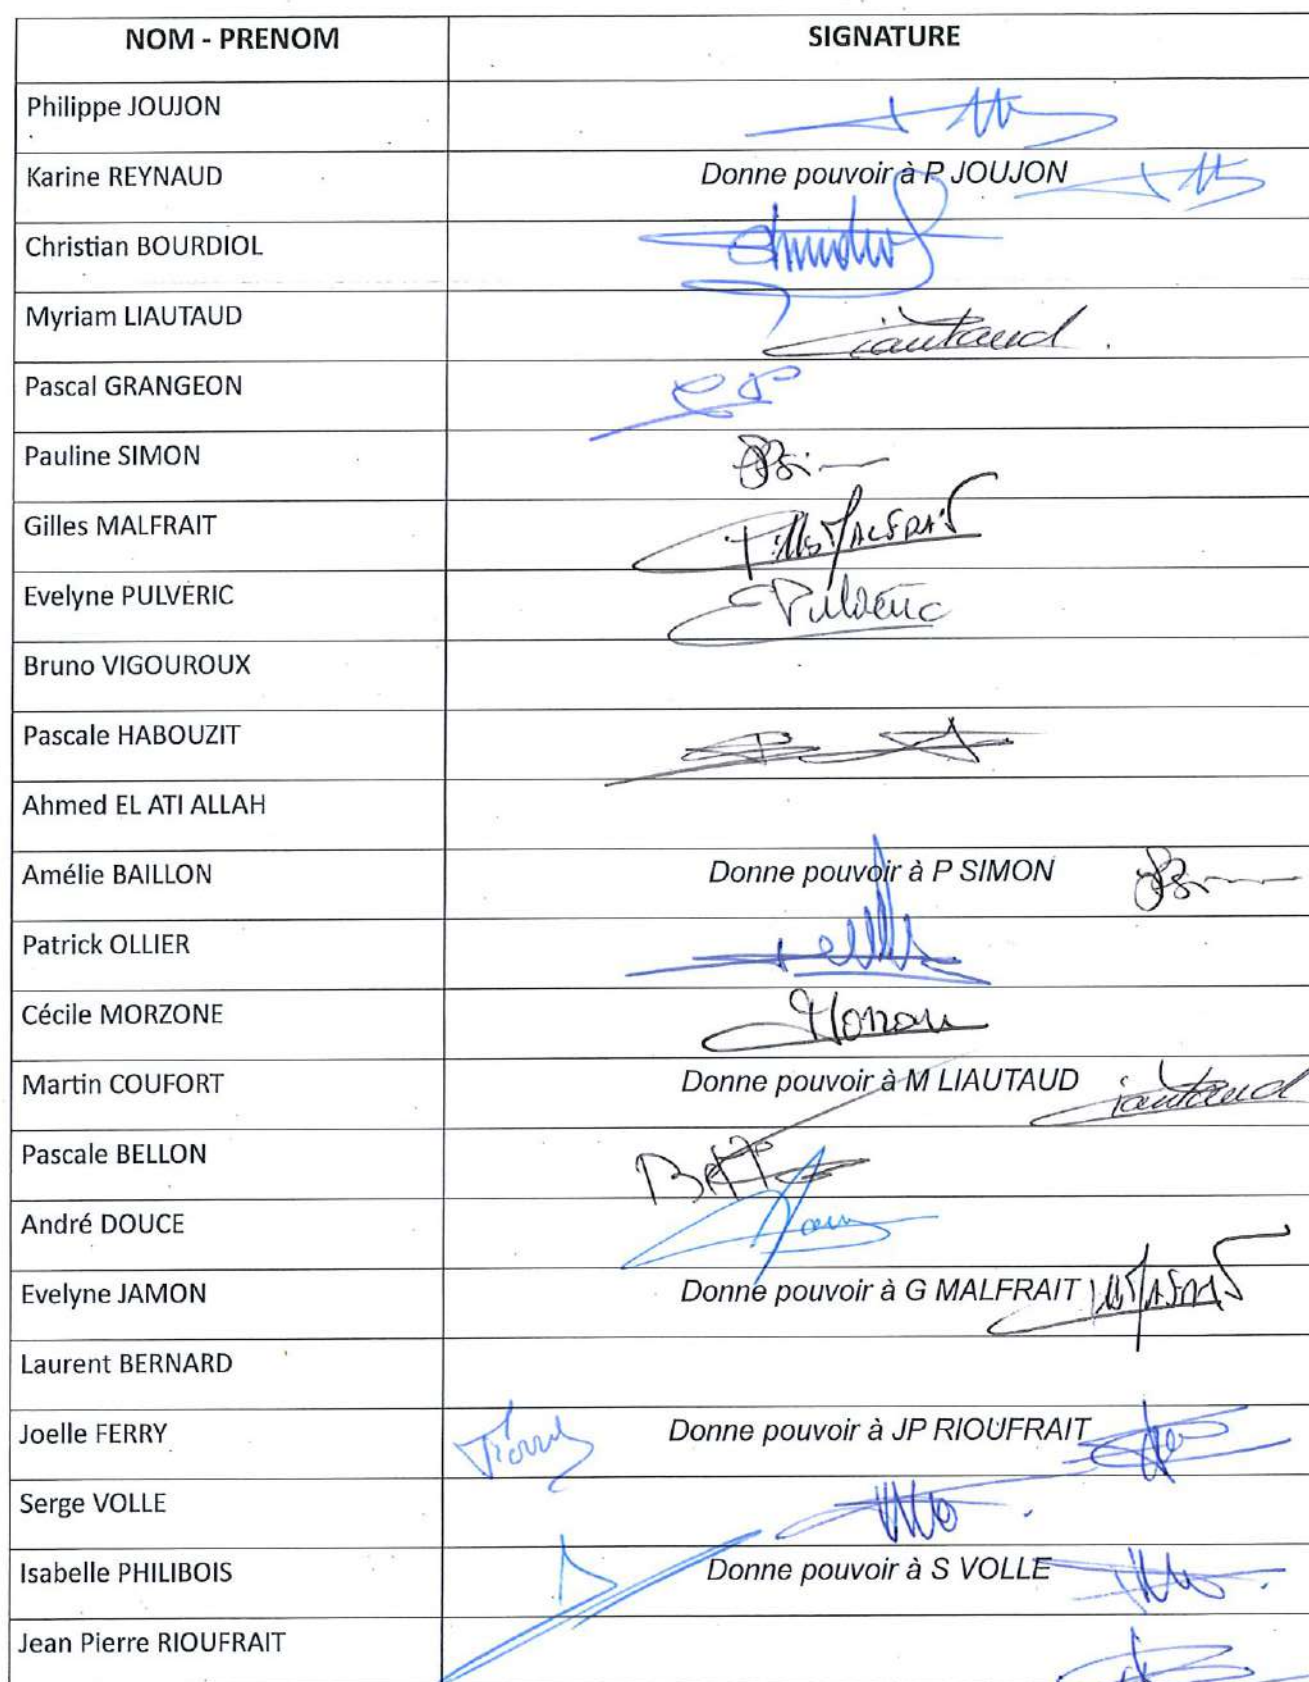 NOM - PRENOM SIGNATURE
Philippe JOUJON
Karine REYNAUD Donne pouvoir à P JOUJON
Christian BOURDIOL
Myriam LIAUTAUD Liautaud.
Pascal GRANGEON
Pauline SIMON
Gilles MALFRAIT Gilles MALFRAIT
Evelyne PULVÉRIC E Pulvéric
Bruno VIGOUROUX
Pascale HABOUZIT
Ahmed EL ATI ALLAH
Amélie BAILLON Donne pouvoir à P SIMON
Patrick OLLIER
Cécile MORZONE
Martin COUFORT Donne pouvoir à M LIAUTAUD Liautaud
Pascale BELLON
André DOUCE
Evelyne JAMON Donne pouvoir à G MALFRAIT
Laurent BERNARD
Joelle FERRY Donne pouvoir à JP RIOUFRAIT
Serge VOLLE
Isabelle PHILIBOIS Donne pouvoir à S VOLLE
Jean Pierre RIOUFRAIT